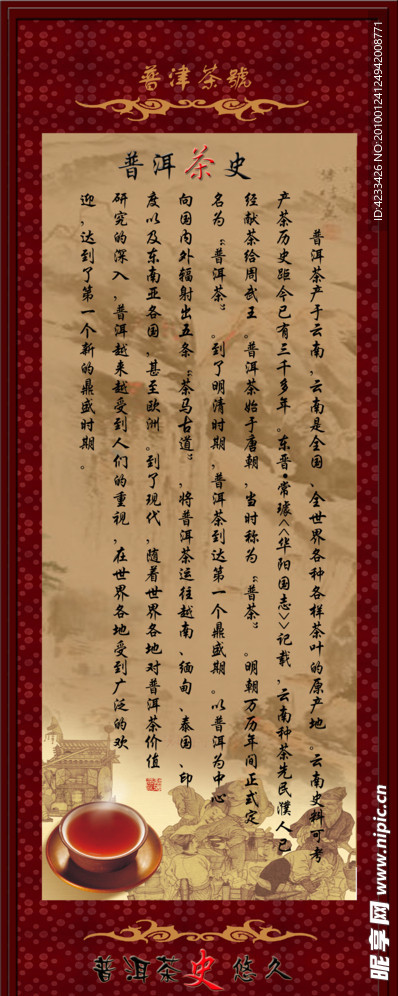 普津茶號
普洱茶史
普洱茶产于云南,云南是全国、全世界各种各样茶叶的原产地。云南史料可考
产茶历史距今已有三千多年。东晋·常璩<<华阳国志>>记载,云南种茶先民濮人已
经献茶给周武王。普洱茶始于唐朝,当时称为“普茶”。明朝万历年间正式定
名为“普洱茶”。到了明清时期,普洱茶到达第一个鼎盛期。以普洱为中心
向国内外辐射出五条“茶马古道”,将普洱茶运往越南、缅甸、泰国、印
度以及东南亚各国,甚至欧洲。到了现代,随着世界各地对普洱茶价值
研究的深入,普洱越来越受到人们的重视,在世界各地受到广泛的欢
迎,达到了第一个新的鼎盛时期。
普洱茶史悠久
ID:4233426 NO:20100124124942008771
昵享网 www.nipic.cn